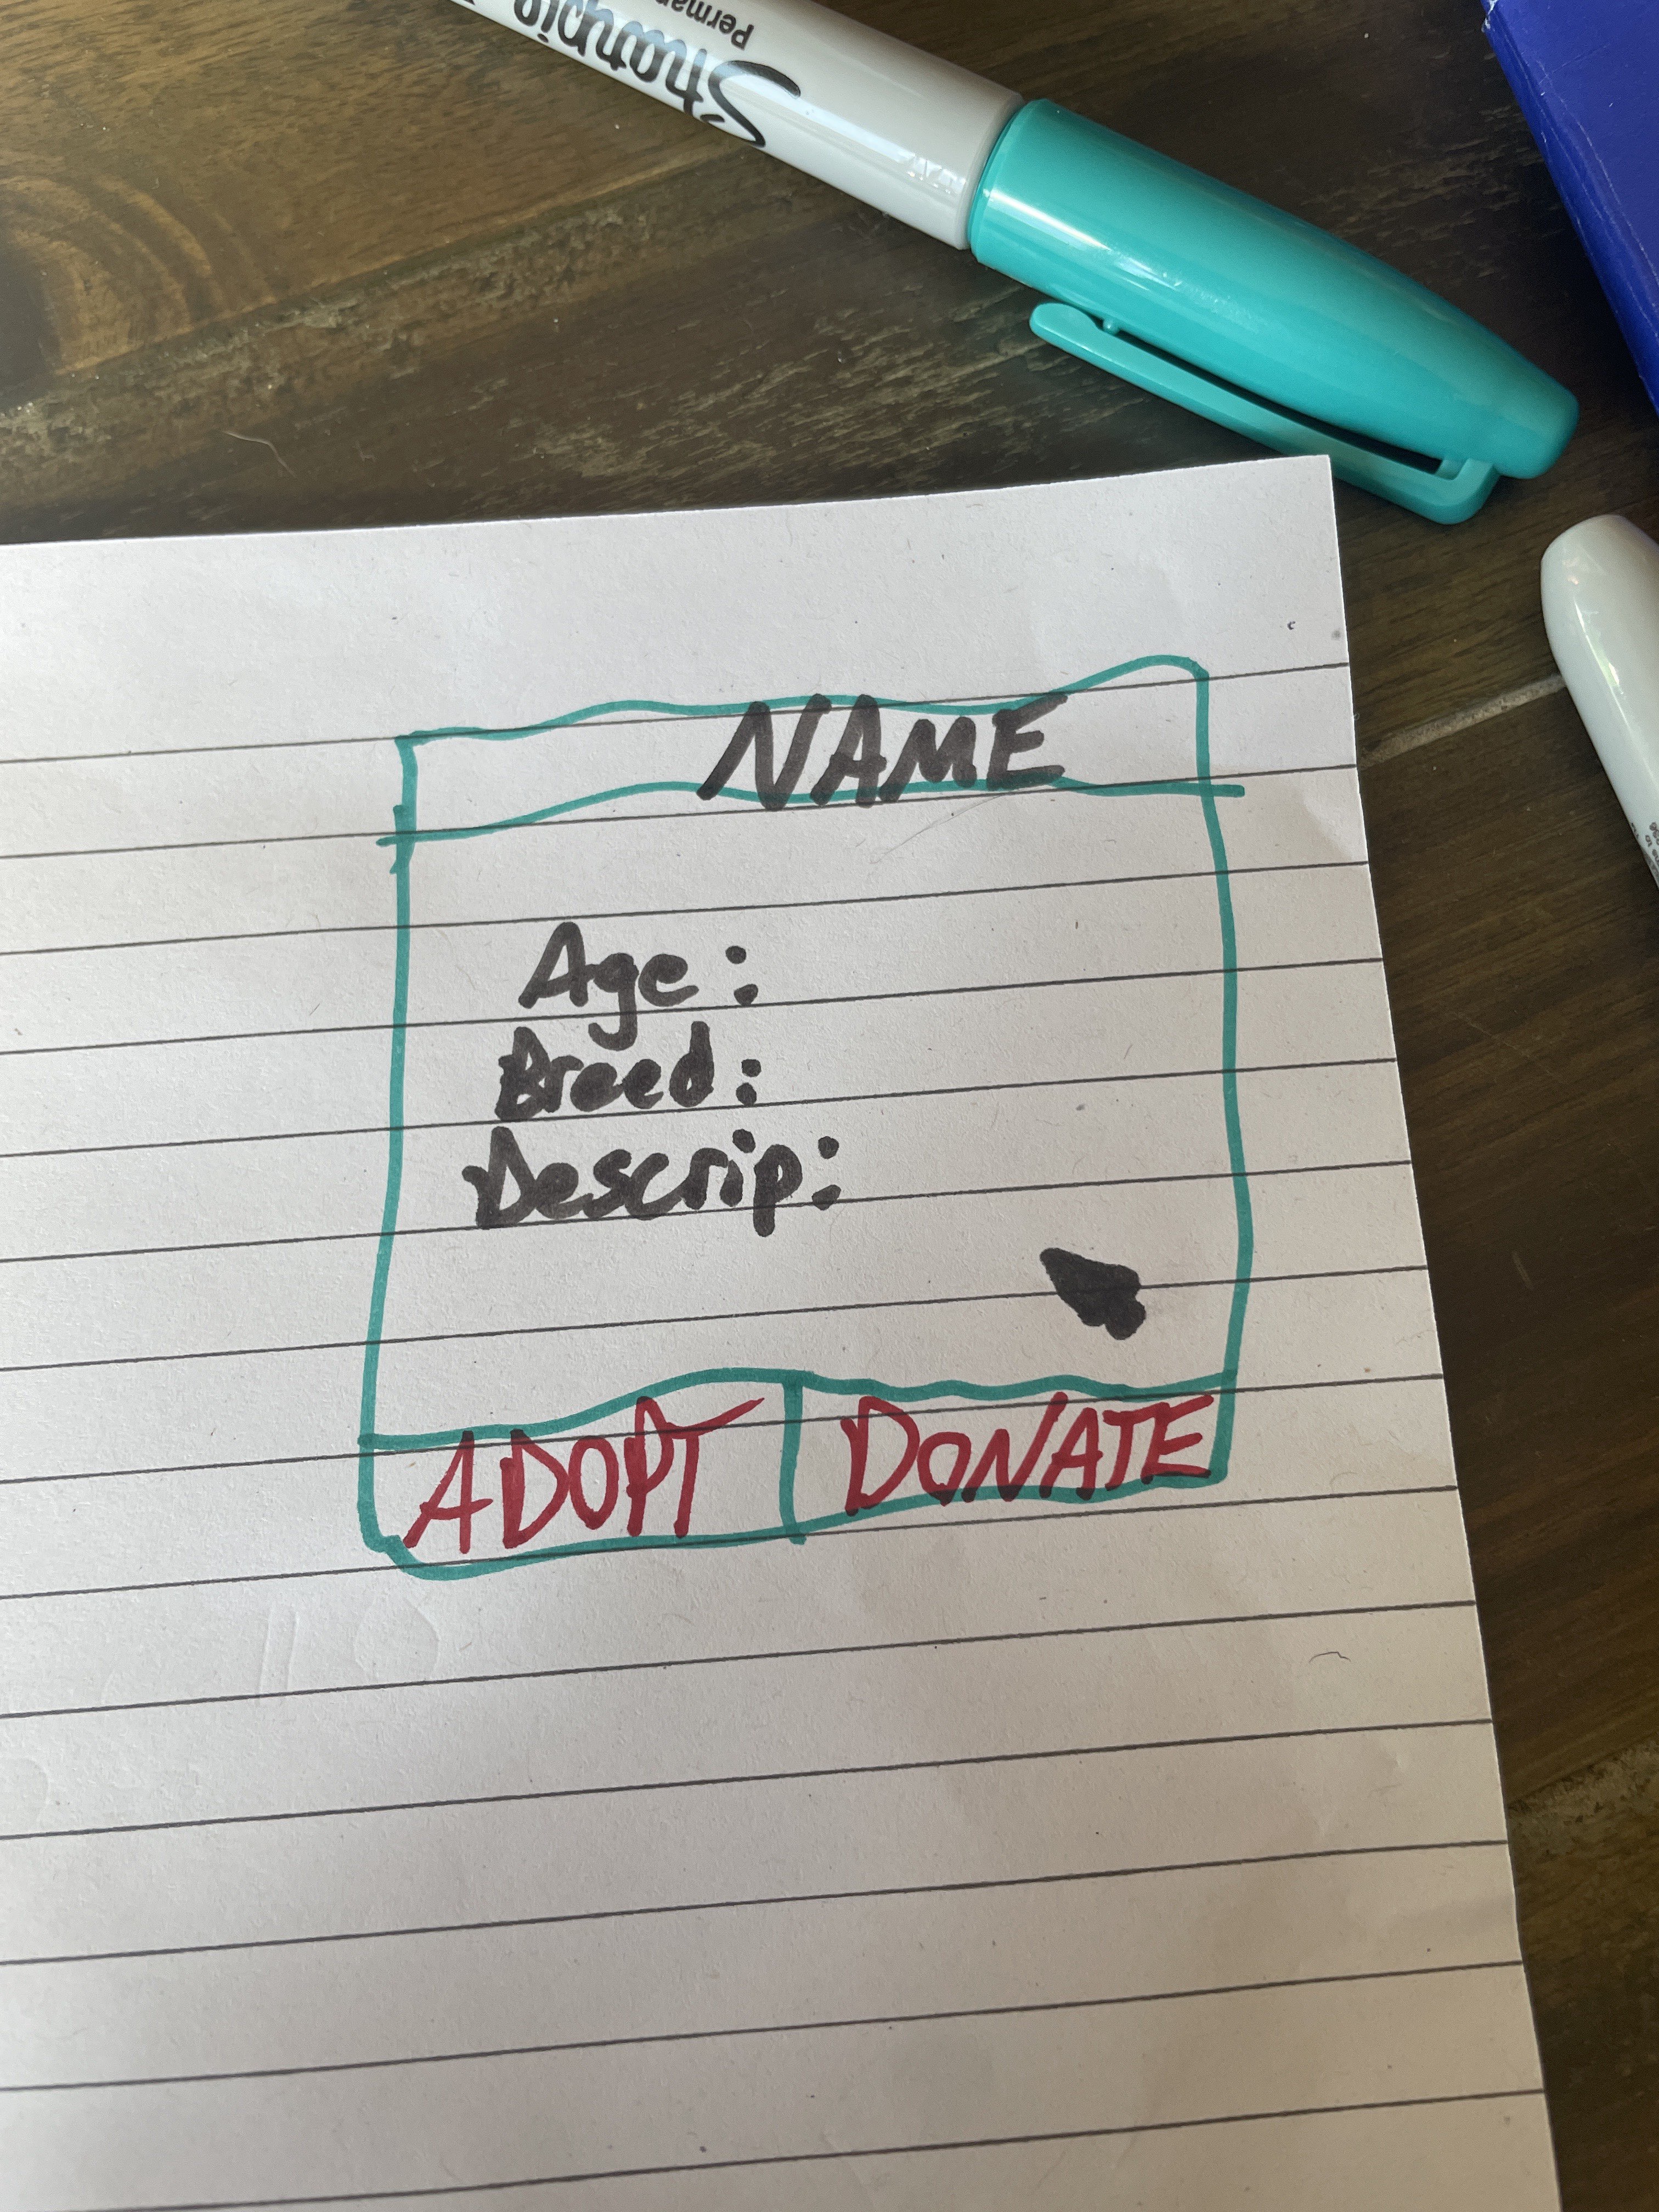 Sharpie
Perma
NAME
Age:
Breed:
Descrip:
ADOPT DONATE